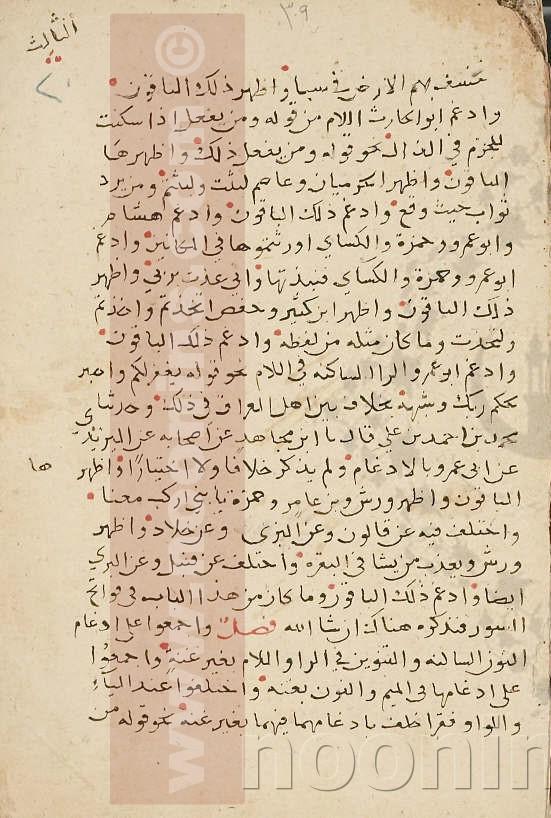 ٣٩
الثالث
نخسف بهم الارض في سبا واظهر ذلك الباقون
وادغم ابو الحارث اللام من قوله ومن يفعل اذا سكنت
للجزم في الذال نحو قوله ومن يفعل ذلك واظهرها
الباقون واظهر الحرميان وعاصم لبثت ولبثتم ومن يرد
ثواب حيث وقع وادغم ذلك الباقون وادغم هشام
وابو عمرو وحمزة والكساي اورثتموها في المكانين وادغم
ابو عمرو وحمزة والكساي فنبذتها واني عذت بربي واظهر
ذلك الباقون واظهر ابن كثير وحفص اتخذتم واخذتم
ولتخذت وما كان مثله من لفظه وادغم ذلك الباقون
وادغم ابو عمرو الرا الساكنه في اللام نحو قوله يغفر لكم واصبر
لحكم ربك وشبهه بخلاف بين اهل العراق في ذلك وحدثنا
محمد بن احمد بن علي قال نا ابن مجاهد عن اصحابه عن اليزيدي
عن ابي عمرو بالادغام ولم يذكر خلافا ولا اختيارا واظهرها
الباقون واظهر ورش وبن عامر وحمزة يا بني اركب معنا
واختلف فيه عن قالون وعن البزي وعن خلاد واظهر
ورش ويعذب من يشا في البقرة واختلف عن قنبل وعن البزي
ايضا وادغم ذلك الباقون وما كان من هذا الباب في فواتح
السور فنذكره هناك ان شا الله فصل واجمعوا على ادغام
النون الساكنه والتنوين في الرا واللام بغير غنة واجمعوا
على ادغامها في الميم والنون بغنه واختلفوا عند الياء
والواو فقرا خلف بادغامهما فيهما بغير غنه نحو قوله من
www.noonin
©
noonin